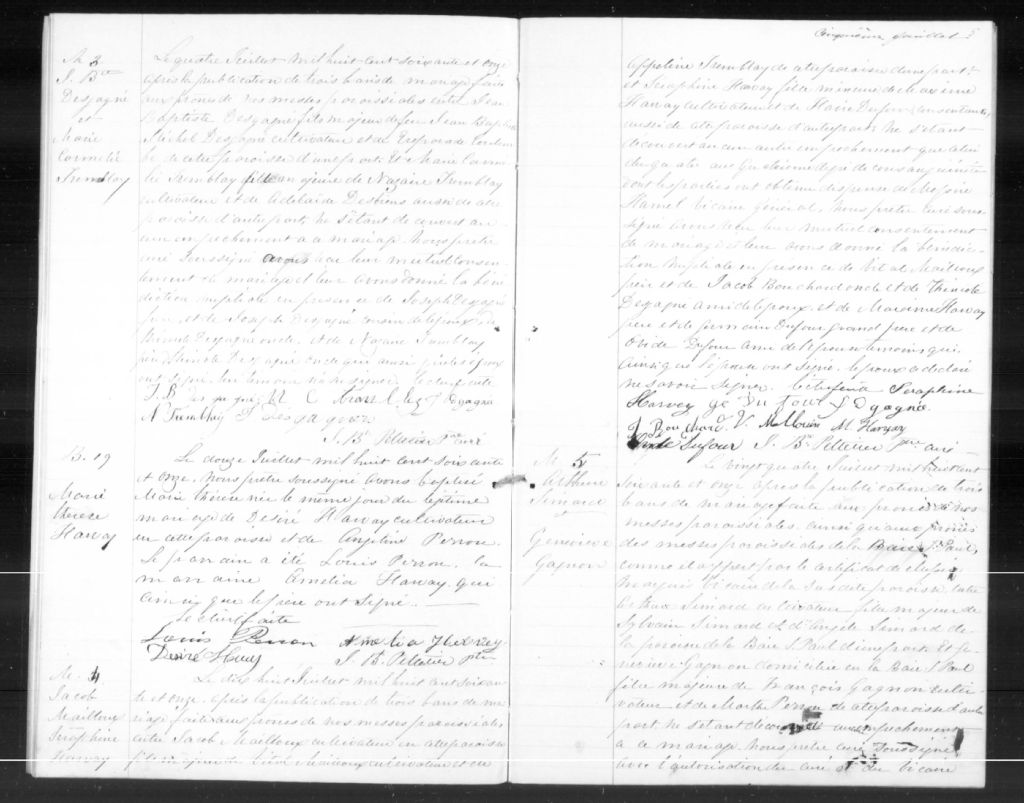 M 3
J. Bte
Desgagné
et
Marie
Carmélie
Tremblay
Le quatre Juillet mil huit cent soixante et onze
après la publication de trois bans de mariage faite
aux prônes de nos messes paroissiales entre Jean
Baptiste Desgagné fils majeur de feu Jean Baptiste
Michel Desgagné cultivateur et de
de cette paroisse d'une part. Et Marie Carmé
lie Tremblay fille majeure de Nazaire Tremblay
cultivateur et de Adélaïde Desbiens aussi de cette
paroisse d'autre part, ne s'étant découvert au
cun empêchement à ce mariage Nous prêtre
curé soussigné avons reçu leur mutuel consen-
tement de mariage et leur avons donné la béné
diction nuptiale en présence de Joseph Desgagné
et de Joseph Desgagné cousin de l'époux
Thimolé Desgagné oncle, et de Nazaire Tremblay
père Thimolé Desgagné oncle qui ainsi que les époux
ont signé. Lecture faite
J. B Desgagné M C Tremblay J Dgagné
N Tremblay T Desgagner
J. Bte Pelletier Ptre curé
B. 19
Marie
thérèse
Harvay
Le douze Juillet mil huit cent soixante
et onze, Nous prêtre soussigné avons baptisé
Marie thérèse née le même jour du légitime
mariage de Desiré Harvay cultivateur
en cette paroisse et de Angeline Perron.
Le parrain a été Louis Perron, la
marraine Amelia Harvay, qui
ainsi que le père ont signé.
Lecture faite
Louis Perron Amelia Harvay
Desiré J. B. Pelletier Ptre
M. 4
Jacob
Mailloux
Séraphine
Harvay
Le dix huit Juillet mil huit cent soixan
te et onze, après la publication de trois bans de ma
riage faite aux prônes de nos messes paroissiales
entre Jacob Mailloux cultivateur en cette paroisse
fils majeur de Vital Mailloux cultivateur et de
Cinquième feuillet 5
Appoline Tremblay de cette paroisse d'une part
et Séraphine Harvay fille mineure de Maxime
Harvay cultivateur et de Marie Dufour consentants,
aussi de cette paroisse d'autre part. Ne s'étant
découvert aucun autre empêchement que celui
du quatre au quatrième degré de consanguinité
dont les parties ont obtenu dispense de
Hamel Vicaire Général, Nous prêtre curé sous-
signé avons reçu leur mutuel consentement
de mariage et leur avons donné la bénédic-
tion nuptiale en présence de Vital Mailloux
père et de Jacob Bouchard oncle et de Thimolé
Desgagné ami de l'époux, et de Maxime Harvay
père et de Germain Dufour grand père et de
Ovide Dufour ami de l'épouse témoins qui
ainsi que l'épouse ont signé, l'époux a déclaré
ne savoir signer. Lecture faite Seraphine
Harvey Ge Dufour T Dgagné
J Bouchard V. Mallouin M Harvay
Ovide Dufour J. Bte Pelletier ptre curé
M. 5
Arthur
Simard
Geneviève
Gagnon
Le vingt quatre Juillet mil huit cent
soixante et onze après la publication de trois
bans de mariage faite aux prônes de nos
messes paroissiales ainsi qu'aux prônes
des messes paroissiales de la Baie St Paul,
comme il appert par le certificat de
vicaire de la susdite paroisse, entre
Simard cultivateur fils majeur de
Sylvain Simard et d'Angèle Simard de
la paroisse de la Baie St Paul d'une part. Et Ge
neviève Gagnon domiciliée en la Baie St Paul
fille majeure de François Gagnon culti-
vateur et de Marthe Perron de cette paroisse d'autre
part, ne s'étant découvert aucun empêchement
à ce mariage. Nous prêtre curé soussigné
avec l'autorisation du curé et du vicaire